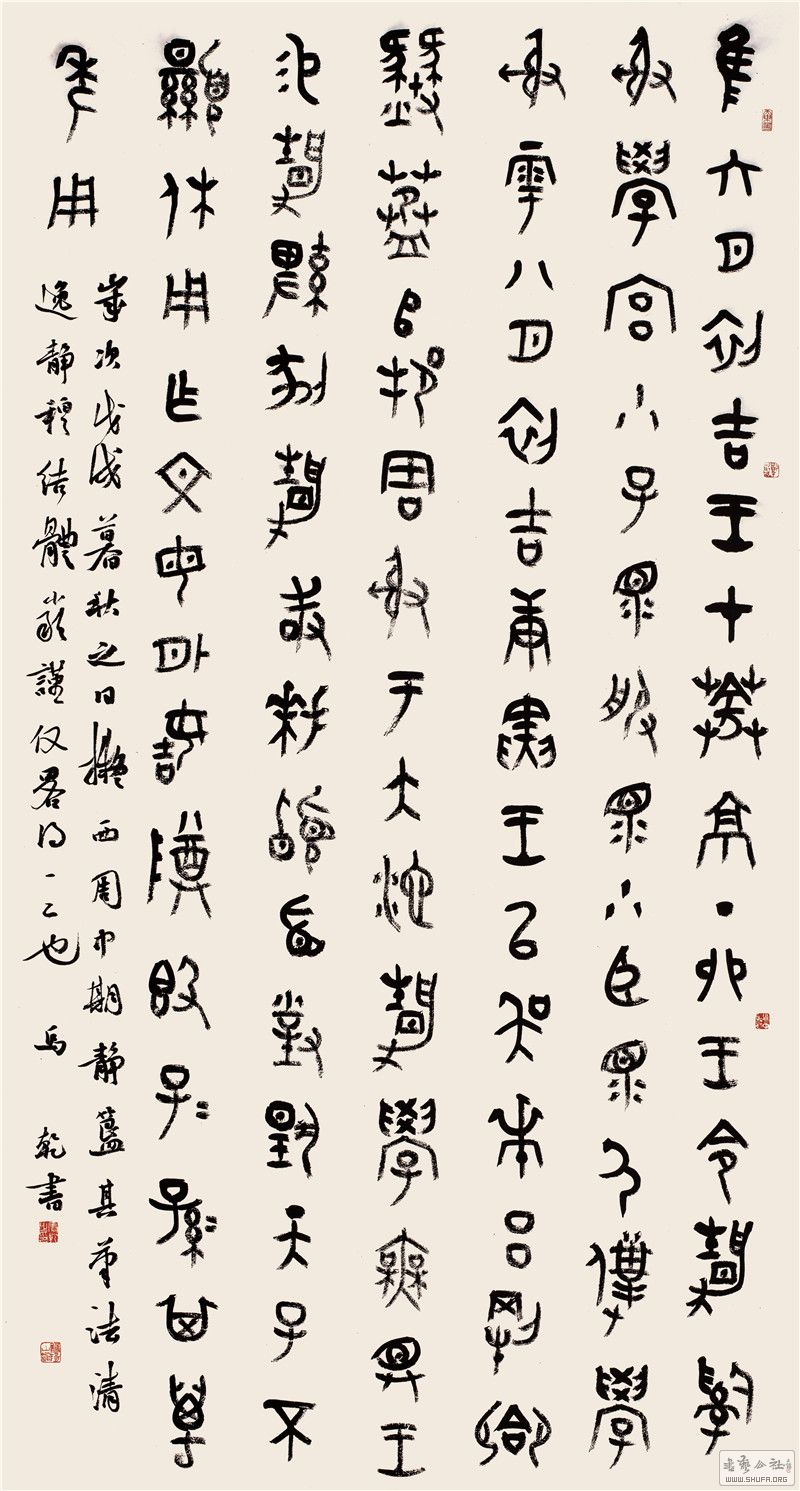 隹六月初吉王才𦯧京丁卯王令靜𤔲
射學宮小子眔服眔小臣眔尸僕學
射雩八月初吉庚寅王以吳𠦪呂剛卿
𢿐蓋𠂤邦周射于大池靜學無斁王
易靜鞞剢靜敢拜𩒨首對揚天子不
顯休用乍文母外姞尊𣪘子=孫=其萬
年用
歲次戊戌暮秋之日擬西周中期靜簋其筆法清
逸靜穆結體嚴謹仅畧得一二也 馬乾書
書艺公社
WWW.SHUFA.ORG